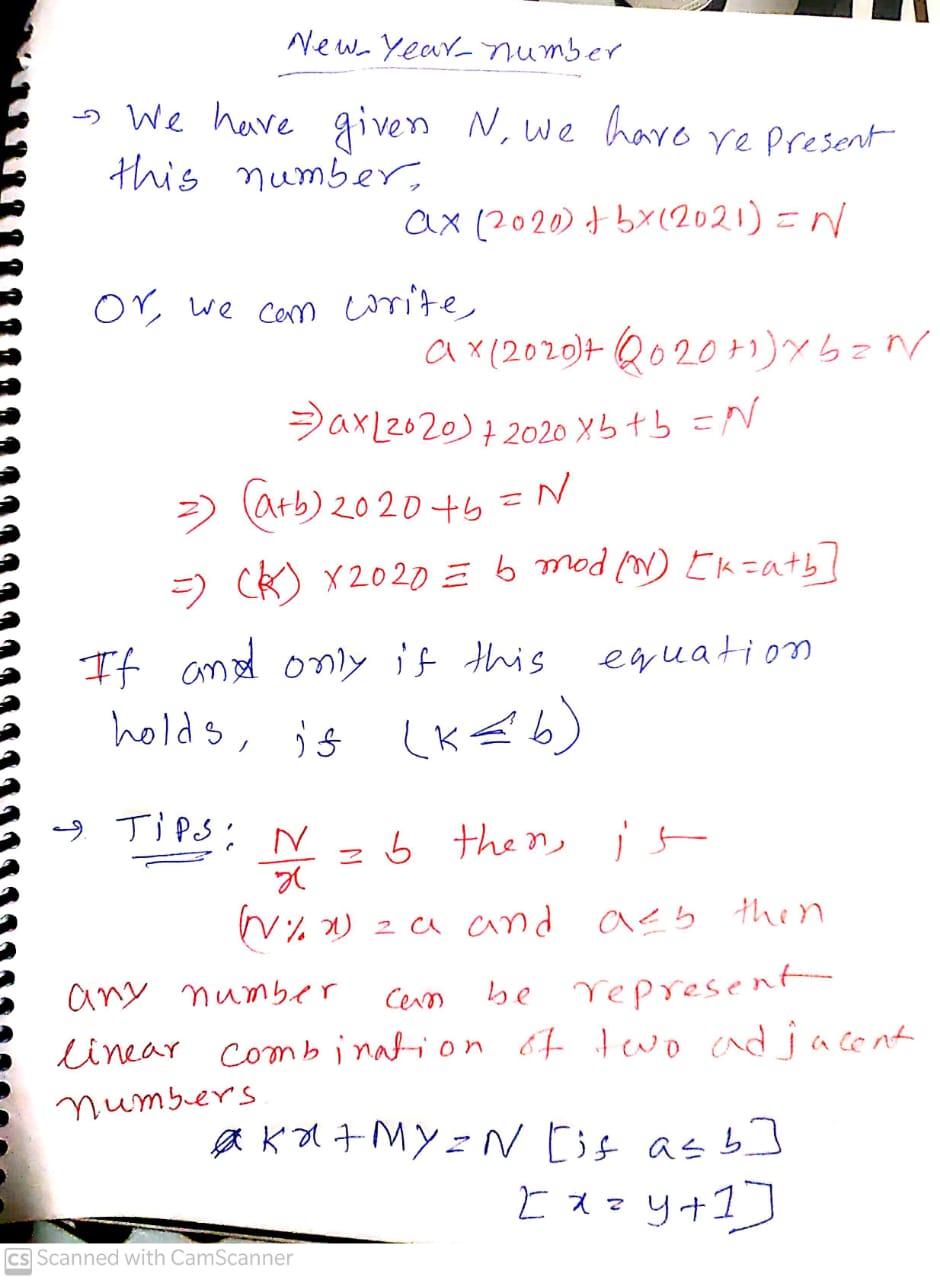 New Year number
→ We have given N, we have represent
this number,
ax (2020) + bx(2021) = N
Or, we can write,
a x(2020)+ (2020+1)x b = N
⇒ ax(2020) + 2020 x b + b = N
⇒ (a+b) 2020 + b = N
⇒ (k) x 2020 ≡ b mod (N) [k=a+b]
If and only if this equation
holds, if (k ≤ b)
→ Tips: N/x = b then, if
(N % x) = a and a≤b then
any number can be represent
linear combination of two adjacent
numbers
kx + My = N [if a ≤ b]
[x = y+1]
CS Scanned with CamScanner